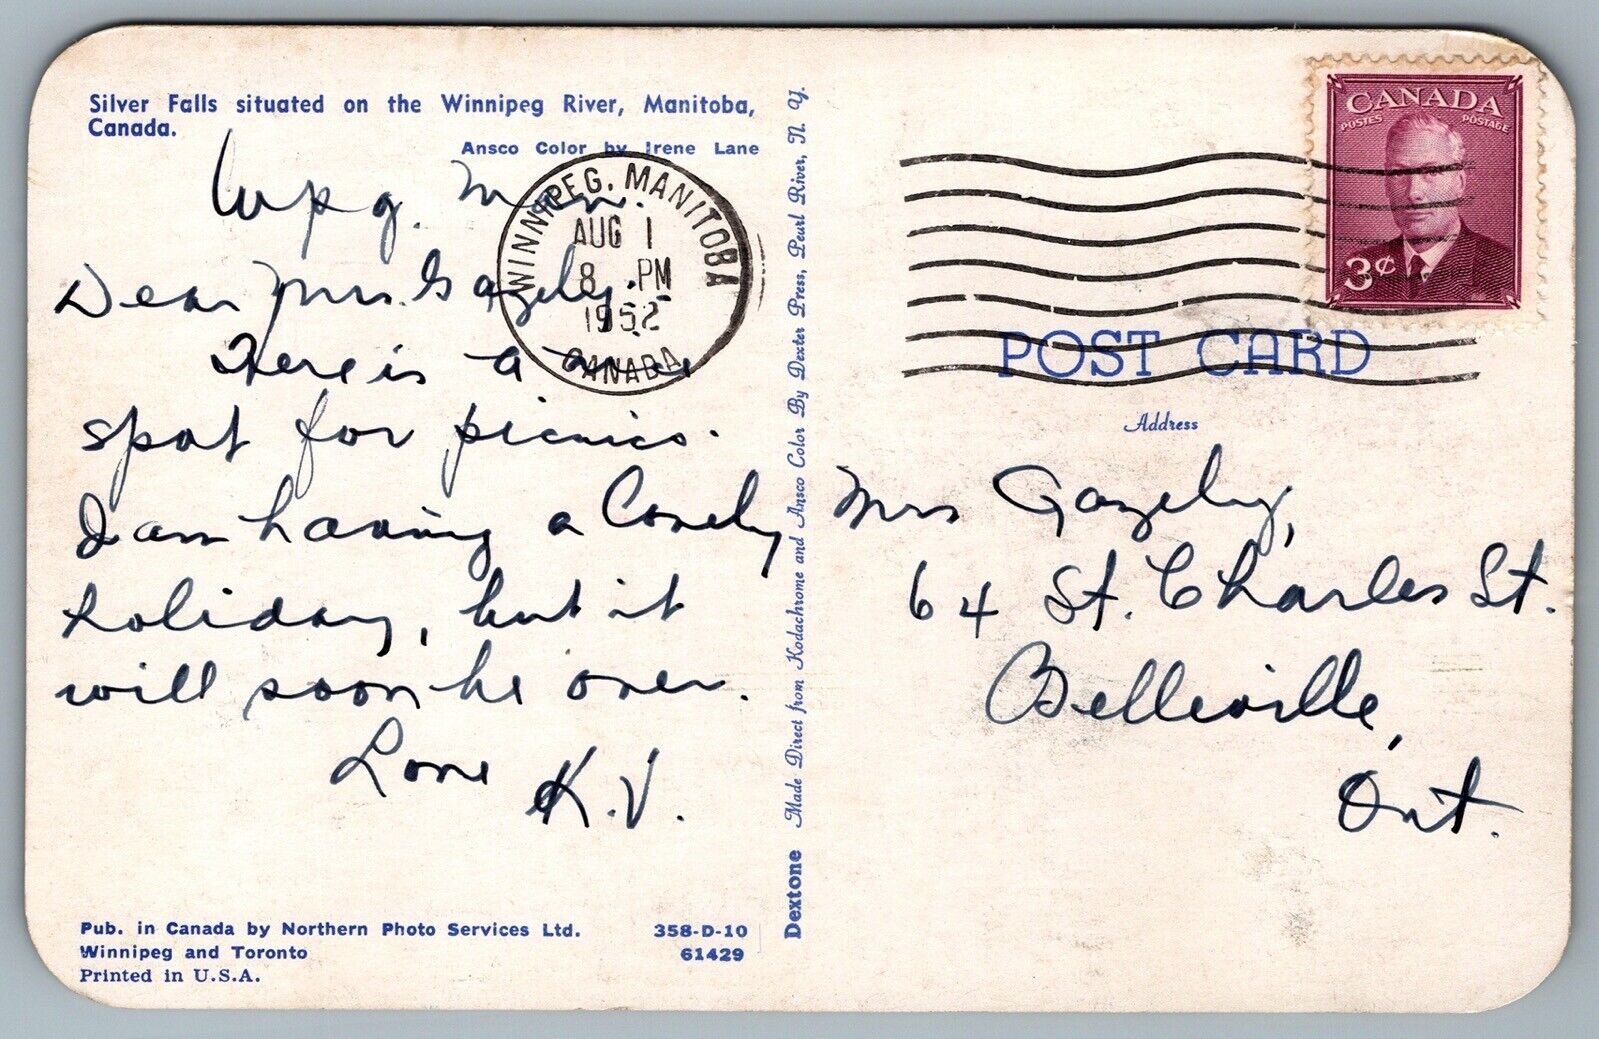 Silver Falls situated on the Winnipeg River, Manitoba,
Canada.
Ansco Color by Irene Lane
Wpg. Man.
Dear Mrs. Gazely.
Here is a
spot for picnics.
I am having a lovely
holiday, but it
will soon be over.
Love K.V.
Pub. in Canada by Northern Photo Services Ltd.
Winnipeg and Toronto
Printed in U.S.A.
358-D-10
61429
Dextone Made Direct from Kodachrome and Ansco Color By Dexter Press, Pearl River, N. Y.
WINNIPEG, MANITOBA
AUG 1
8 PM
1952
CANADA
CANADA
POSTES POSTAGE
3¢
POST CARD
Address
Mrs Gazely,
64 St. Charles St.
Belleville,
Ont.